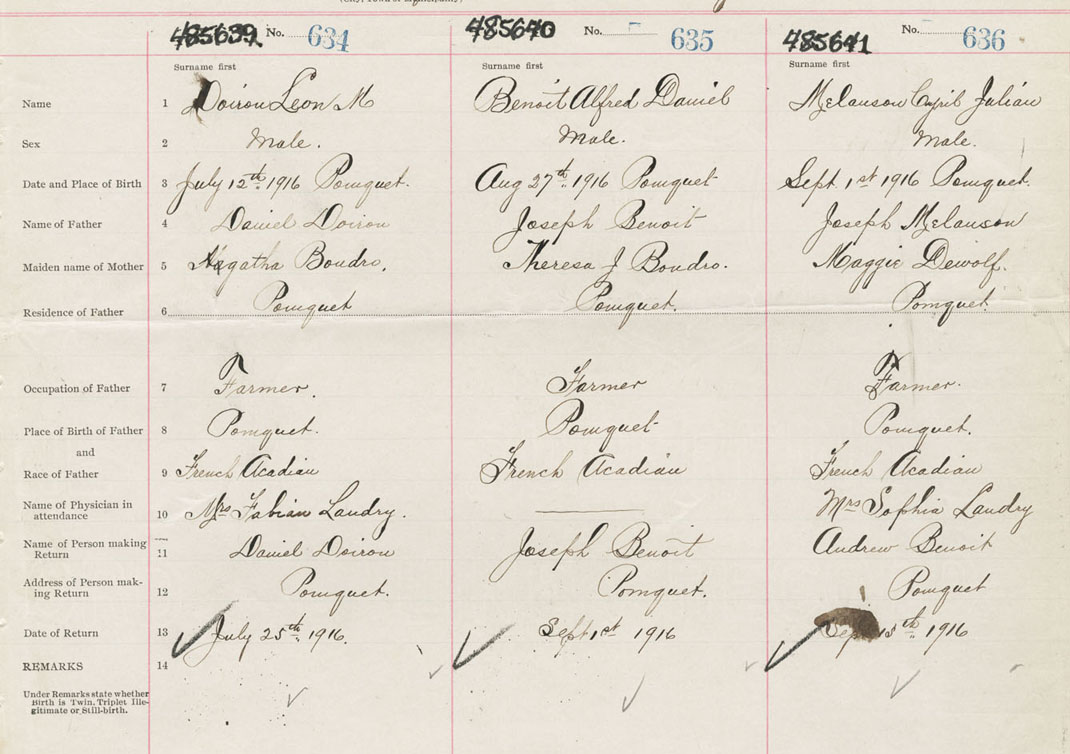 485639 No. 634 485640 No. 635 485641 No. 636
Surname first Surname first Surname first
Name 1 Doiron Leon M Benoit Alfred Daniel Melanson Cyril Julian
Sex 2 Male. Male. Male.
Date and Place of Birth 3 July 12th. 1916 Pomquet. Aug 27th. 1916 Pomquet Sept. 1st 1916 Pomquet.
Name of Father 4 Daniel Doiron Joseph Benoit Joseph Melanson
Maiden name of Mother 5 Agatha Boudro. Theresa J Boudro. Maggie Dewolf.
Residence of Father 6 Pomquet Pomquet. Pomquet.
Occupation of Father 7 Farmer. Farmer Farmer.
Place of Birth of Father 8 Pomquet. Pomquet Pomquet.
and
Race of Father 9 French Acadian French Acadian French Acadian
Name of Physician in
attendance 10 Mrs Fabian Landry. Mrs Sophia Landry
Name of Person making
Return 11 Daniel Doiron Joseph Benoit Andrew Benoit
Address of Person mak-
ing Return 12 Pomquet. Pomquet. Pomquet
Date of Return 13 July 25th. 1916. Sept 1st 1916 Sept 15th. 1916
REMARKS 14
Under Remarks state whether
Birth is Twin, Triplet Ille-
gitimate or Still-birth.